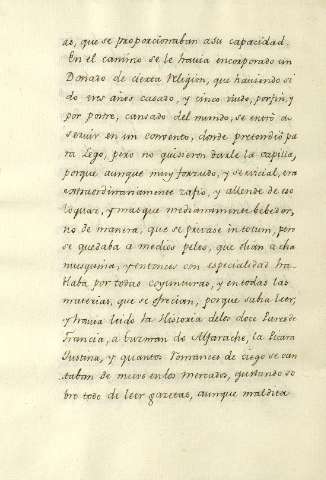 as, que se proporcionaban a su capacidad.
En el camino se le havia encorporado un
Donado de cierta Religion, que haviendo si
do tres años casado, y cinco viudo, por fin, y
por postre, cansado del mundo, se entrò a
servir en un convento, donde pretendiò pa
ra Lego, pero no quisieron darle la capilla,
porque aunque muy forzudo, y servicial, era
extraordinariamente zafio, y allende de eso
loquaz, y mas que medianamente bebedor,
no de manera, que se privase in totum, pero
se quedaba a medios pelos, que olian a cha
musquina, y entonces con especialidad ha
blaba por todas coyunturas, y en todas las
materias, que se ofrecian, porque sabia leer,
y havia leido la Historia de los doce Pares de
Francia, a Guzman de Alfarache, la Picara
Justina, y quantos Romances de ciego se can
taban de nuevo en los mercados, gustando so
bre todo de leer gazetas, aunque maldita